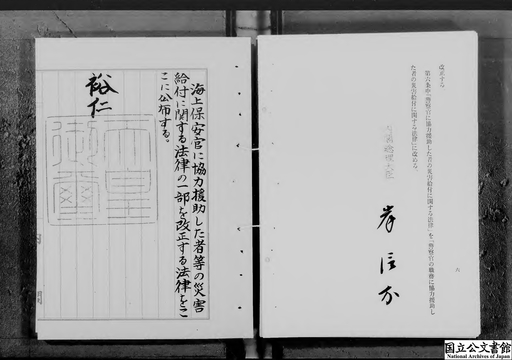 改正する。
第六条中「警察官に協力援助した者の災害給付に関する法律」を「警察官の職務に協力援助し
た者の災害給付に関する法律」に改める。
内閣総理大臣
岸信介
六
海上保安官に協力援助した者等の災害
給付に関する法律の一部を改正する法律をこ
こに公布する。
裕仁
天皇
御璽
国立公文書館
National Archives of Japan